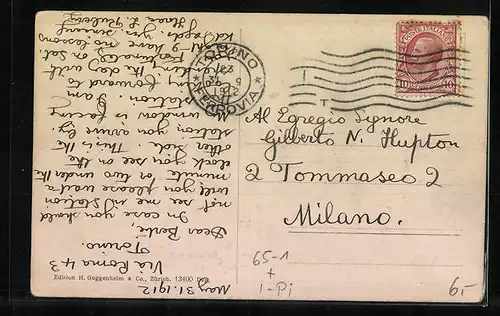 Via Roma 43
Torino.
May 31. 1912
Dear Bertie,
In case you should
not see me in station
will you please wait a
minute or two under the
clock you see on the
other side. This is the
station you arrive by.
window is facing
station I am
forward to
the day with
Fortunately
I have no lessons on Sat.
Yrs sincerely
Grace L.
TORINO
1912
FERROVIA
POSTE ITALIANE
10 10
Al Egregio Signore
Gilberto N. Hupton
2 Tommaseo 2
Milano.
65-1
+
1-Pi
6.-
Edition H. Guggenheim & Co., Zürich. 13400